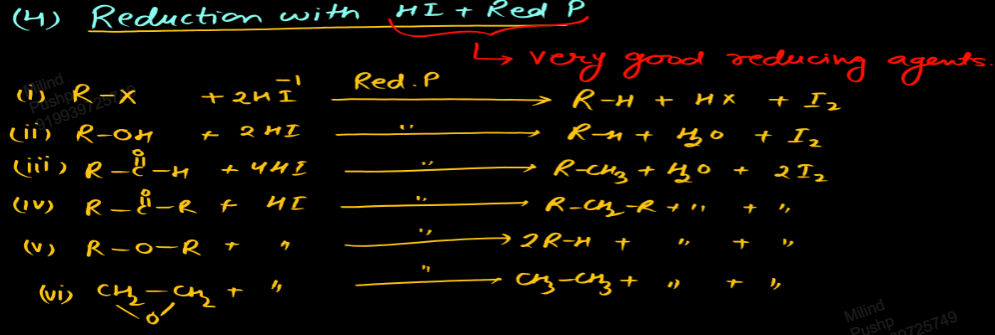 (4) Reduction with HI + Red P
↳ very good reducing agents.
(i) R-X + 2HI⁻¹ Red.P → R-H + HX + I₂
(ii) R-OH + 2HI " → R-H + H₂O + I₂
(iii) R-C(=O)-H + 4HI " → R-CH₃ + H₂O + 2I₂
(iv) R-C(=O)-R + HI " → R-CH₂-R + " + "
(v) R-O-R + " " → 2R-H + " + "
(vi) CH₂-CH₂ + " " → CH₃-CH₃ + " + "
O
Milind
Pushp
919939725749
Milind
Pushp
9725749